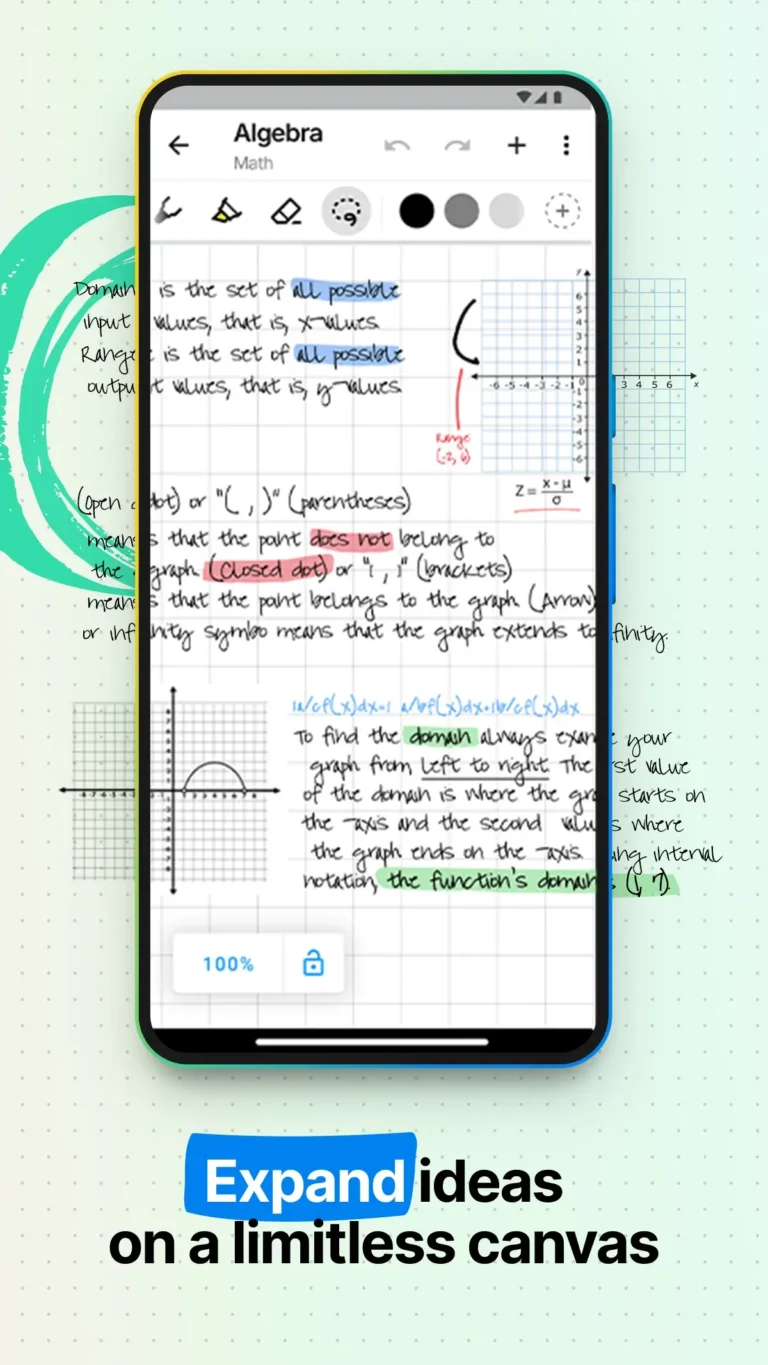 Algebra
Math
Domain is the set of all possible
input values, that is, x-values
Range is the set of all possible
output values, that is, y-values
y
6
5
4
3
2
1
-6 -5 -4 -3 -2 -1 0 3 4 5 6 x
-1
-2
-3
-4
-5
-6
Range
(-2, 6)
Z = x - μ
σ
(Open dot) or "( , )" (parentheses)
means that the point does not belong to
the graph (Closed dot) or "[ , ]" (brackets)
means that the point belongs to the graph (Arrow)
or infinity symbo means that the graph extends to finity.
1a/cf(x)dx=1 a/bf(x)dx+1b/cf(x)dx
To find the domain always exam your
graph from left to right The rst value
of the domain is where the gra starts on
the -axis and the second value s where
the graph ends on the -axis. ing interval
notation, the function's domain (1, 7)
100%
Expand ideas
on a limitless canvas